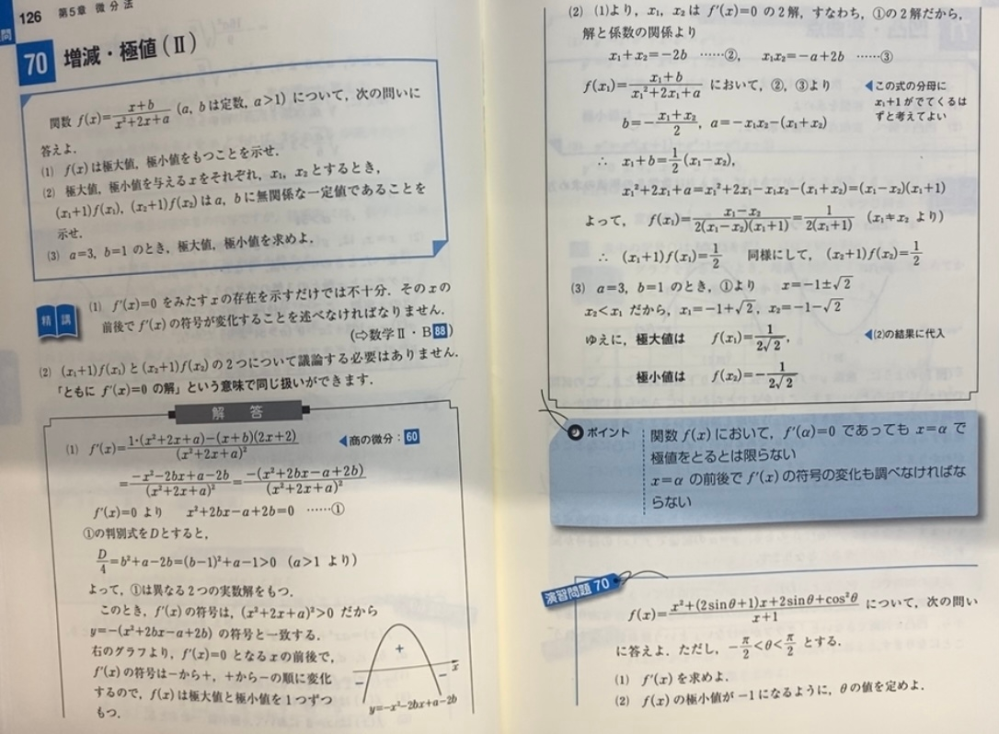 問
126 第5章 微分法
70 増減・極値(Ⅱ)
関数 f(x)=\frac{x+b}{x²+2x+a} (a, bは定数, a>1) について, 次の問いに
答えよ.
(1) f(x)は極大値, 極小値をもつことを示せ.
(2) 極大値, 極小値を与えるxをそれぞれ, x₁, x₂とするとき,
(x₁+1)f(x₁), (x₂+1)f(x₂)はa, bに無関係な一定値であることを
示せ.
(3) a=3, b=1のとき, 極大値, 極小値を求めよ.
精講
(1) f′(x)=0 をみたすxの存在を示すだけでは不十分. そのxの
前後で f′(x)の符号が変化することを述べなければなりません.
(⇨数学Ⅱ・B88)
(2) (x₁+1)f(x₁)と(x₂+1)f(x₂)の2つについて議論する必要はありません.
「ともに f′(x)=0 の解」という意味で同じ扱いができます.
解答
(1) f′(x)=\frac{1・(x²+2x+a)-(x+b)(2x+2)}{(x²+2x+a)²} ◀商の微分:60
=\frac{-x²-2bx+a-2b}{(x²+2x+a)²}=\frac{-(x²+2bx-a+2b)}{(x²+2x+a)²}
f′(x)=0 より x²+2bx-a+2b=0 ……①
①の判別式をDとすると,
\frac{D}{4}=b²+a-2b=(b-1)²+a-1>0 (a>1 より)
よって, ①は異なる2つの実数解をもつ.
このとき, f′(x)の符号は, (x²+2x+a)²>0 だから
y=-(x²+2bx-a+2b) の符号と一致する.
右のグラフより, f′(x)=0 となるxの前後で,
f′(x)の符号は-から+, +から-の順に変化
するので, f(x)は極大値と極小値を1つずつ
もつ.
+
- - x
y=-x²-2bx+a-2b
(2) (1)より, x₁, x₂は f′(x)=0 の2解, すなわち, ①の2解だから,
解と係数の関係より
x₁+x₂=-2b ……②, x₁x₂=-a+2b ……③
f(x₁)=\frac{x₁+b}{x₁²+2x₁+a} において, ②, ③より ◀この式の分母に
x₁+1がでてくるは
ずと考えてよい
b=-\frac{x₁+x₂}{2}, a=-x₁x₂-(x₁+x₂)
∴ x₁+b=\frac{1}{2}(x₁-x₂),
x₁²+2x₁+a=x₁²+2x₁-x₁x₂-(x₁+x₂)=(x₁-x₂)(x₁+1)
よって, f(x₁)=\frac{x₁-x₂}{2(x₁-x₂)(x₁+1)}=\frac{1}{2(x₁+1)} (x₁≠x₂ より)
∴ (x₁+1)f(x₁)=\frac{1}{2} 同様にして, (x₂+1)f(x₂)=\frac{1}{2}
(3) a=3, b=1のとき, ①より x=-1±√2
x₂<x₁ だから, x₁=-1+√2, x₂=-1-√2
ゆえに, 極大値は f(x₁)=\frac{1}{2√2}, ◀(2)の結果に代入
極小値は f(x₂)=-\frac{1}{2√2}
ポイント
関数 f(x)において, f′(α)=0 であっても x=α で
極値をとるとは限らない
x=α の前後で f′(x)の符号の変化も調べなければな
らない
演習問題 70
f(x)=\frac{x²+(2sinθ+1)x+2sinθ+cos²θ}{x+1} について, 次の問い
に答えよ. ただし, -\frac{π}{2}<θ<\frac{π}{2} とする.
(1) f′(x)を求めよ.
(2) f(x)の極小値が-1になるように, θの値を定めよ.